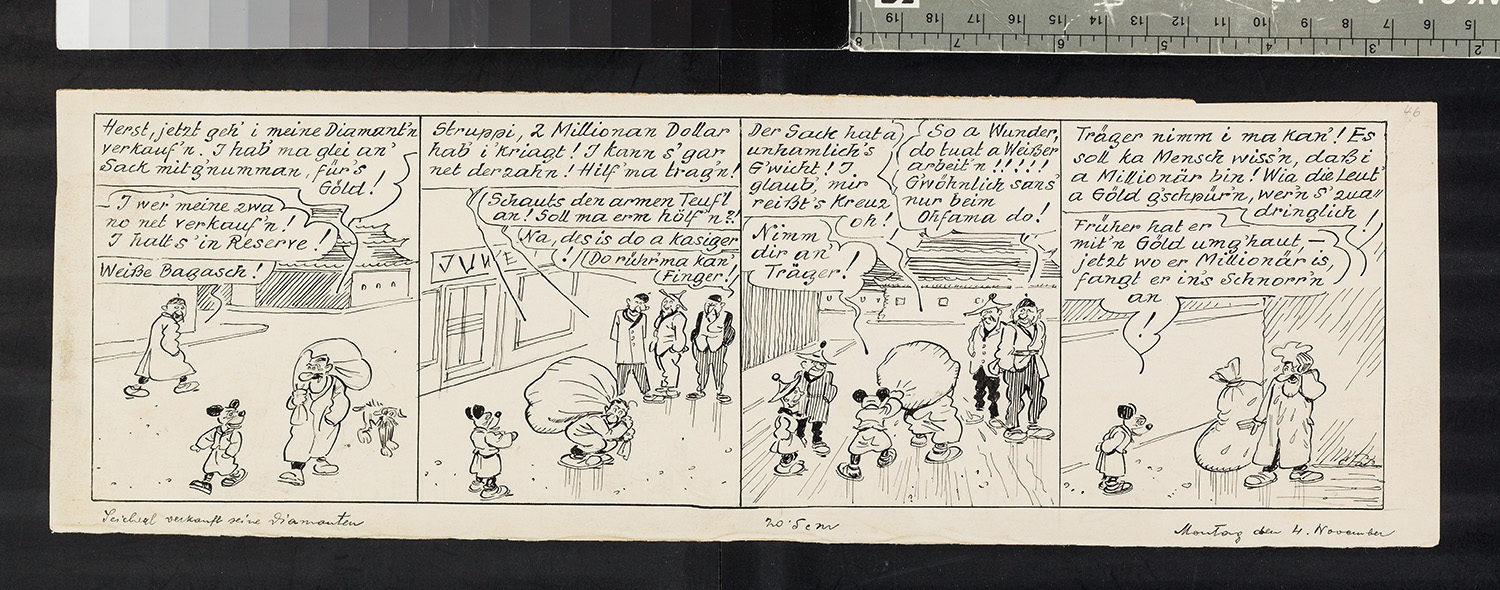 46
Herst, jetzt geh' i meine Diamant'n
verkauf'n. I hab' ma glei an'
Sack mitg'numman, für's
Göld!
I wer' meine zwa
no net verkauf'n!
I halt s' in Reserve!
Weiße Bagasch!
Struppi, 2 Millionan Dollar
hab' i 'kriagt! I kann s' gar
net derzahn! Hilf' ma trag'n!
Schauts den armen Teuf'l
an! Soll ma erm hölf'n?!
Na, des is do a kasiger
! Do rühr' ma kan'
Finger!
JUWE
Der Sack hat a
unhamlich's
G'wicht! I
glaub', mir
reißt's Kreuz
oh!
So a Wunder,
do tuat a Weißer
arbeit'n!!!!!
G'wöhnlich sans'
nur beim
Ohfama do!
Nimm
dir an'
Träger!
Träger nimm i ma kan'! Es
soll ka Mensch wiss'n, daß i
a Millionär bin! Wia die Leut'
a Göld g'schpür'n, wer'n s' zua
dringlich!
Früher hat er
mit'n Göld umg'haut, –
jetzt wo er Millionär is,
fangt er in's Schnorr'n
an!
Seicherl verkauft seine Diamanten
20·5 cm
Montag den 4. November
19 18 17 16 15 14 13 12 11 10 9 8 7 6 5
8 7 6 5 4 3 2